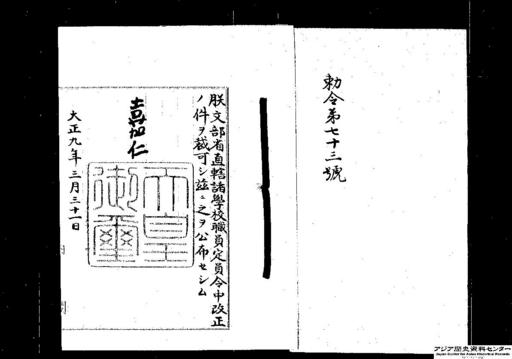 勅令第七十三號
朕文部省直轄諸學校職員定員令中改正
ノ件ヲ裁可シ茲ニ之ヲ公布セシム
嘉仁
天皇御璽
大正九年三月三十一日
内閣
アジア歴史資料センター
Japan Center for Asian Historical Records